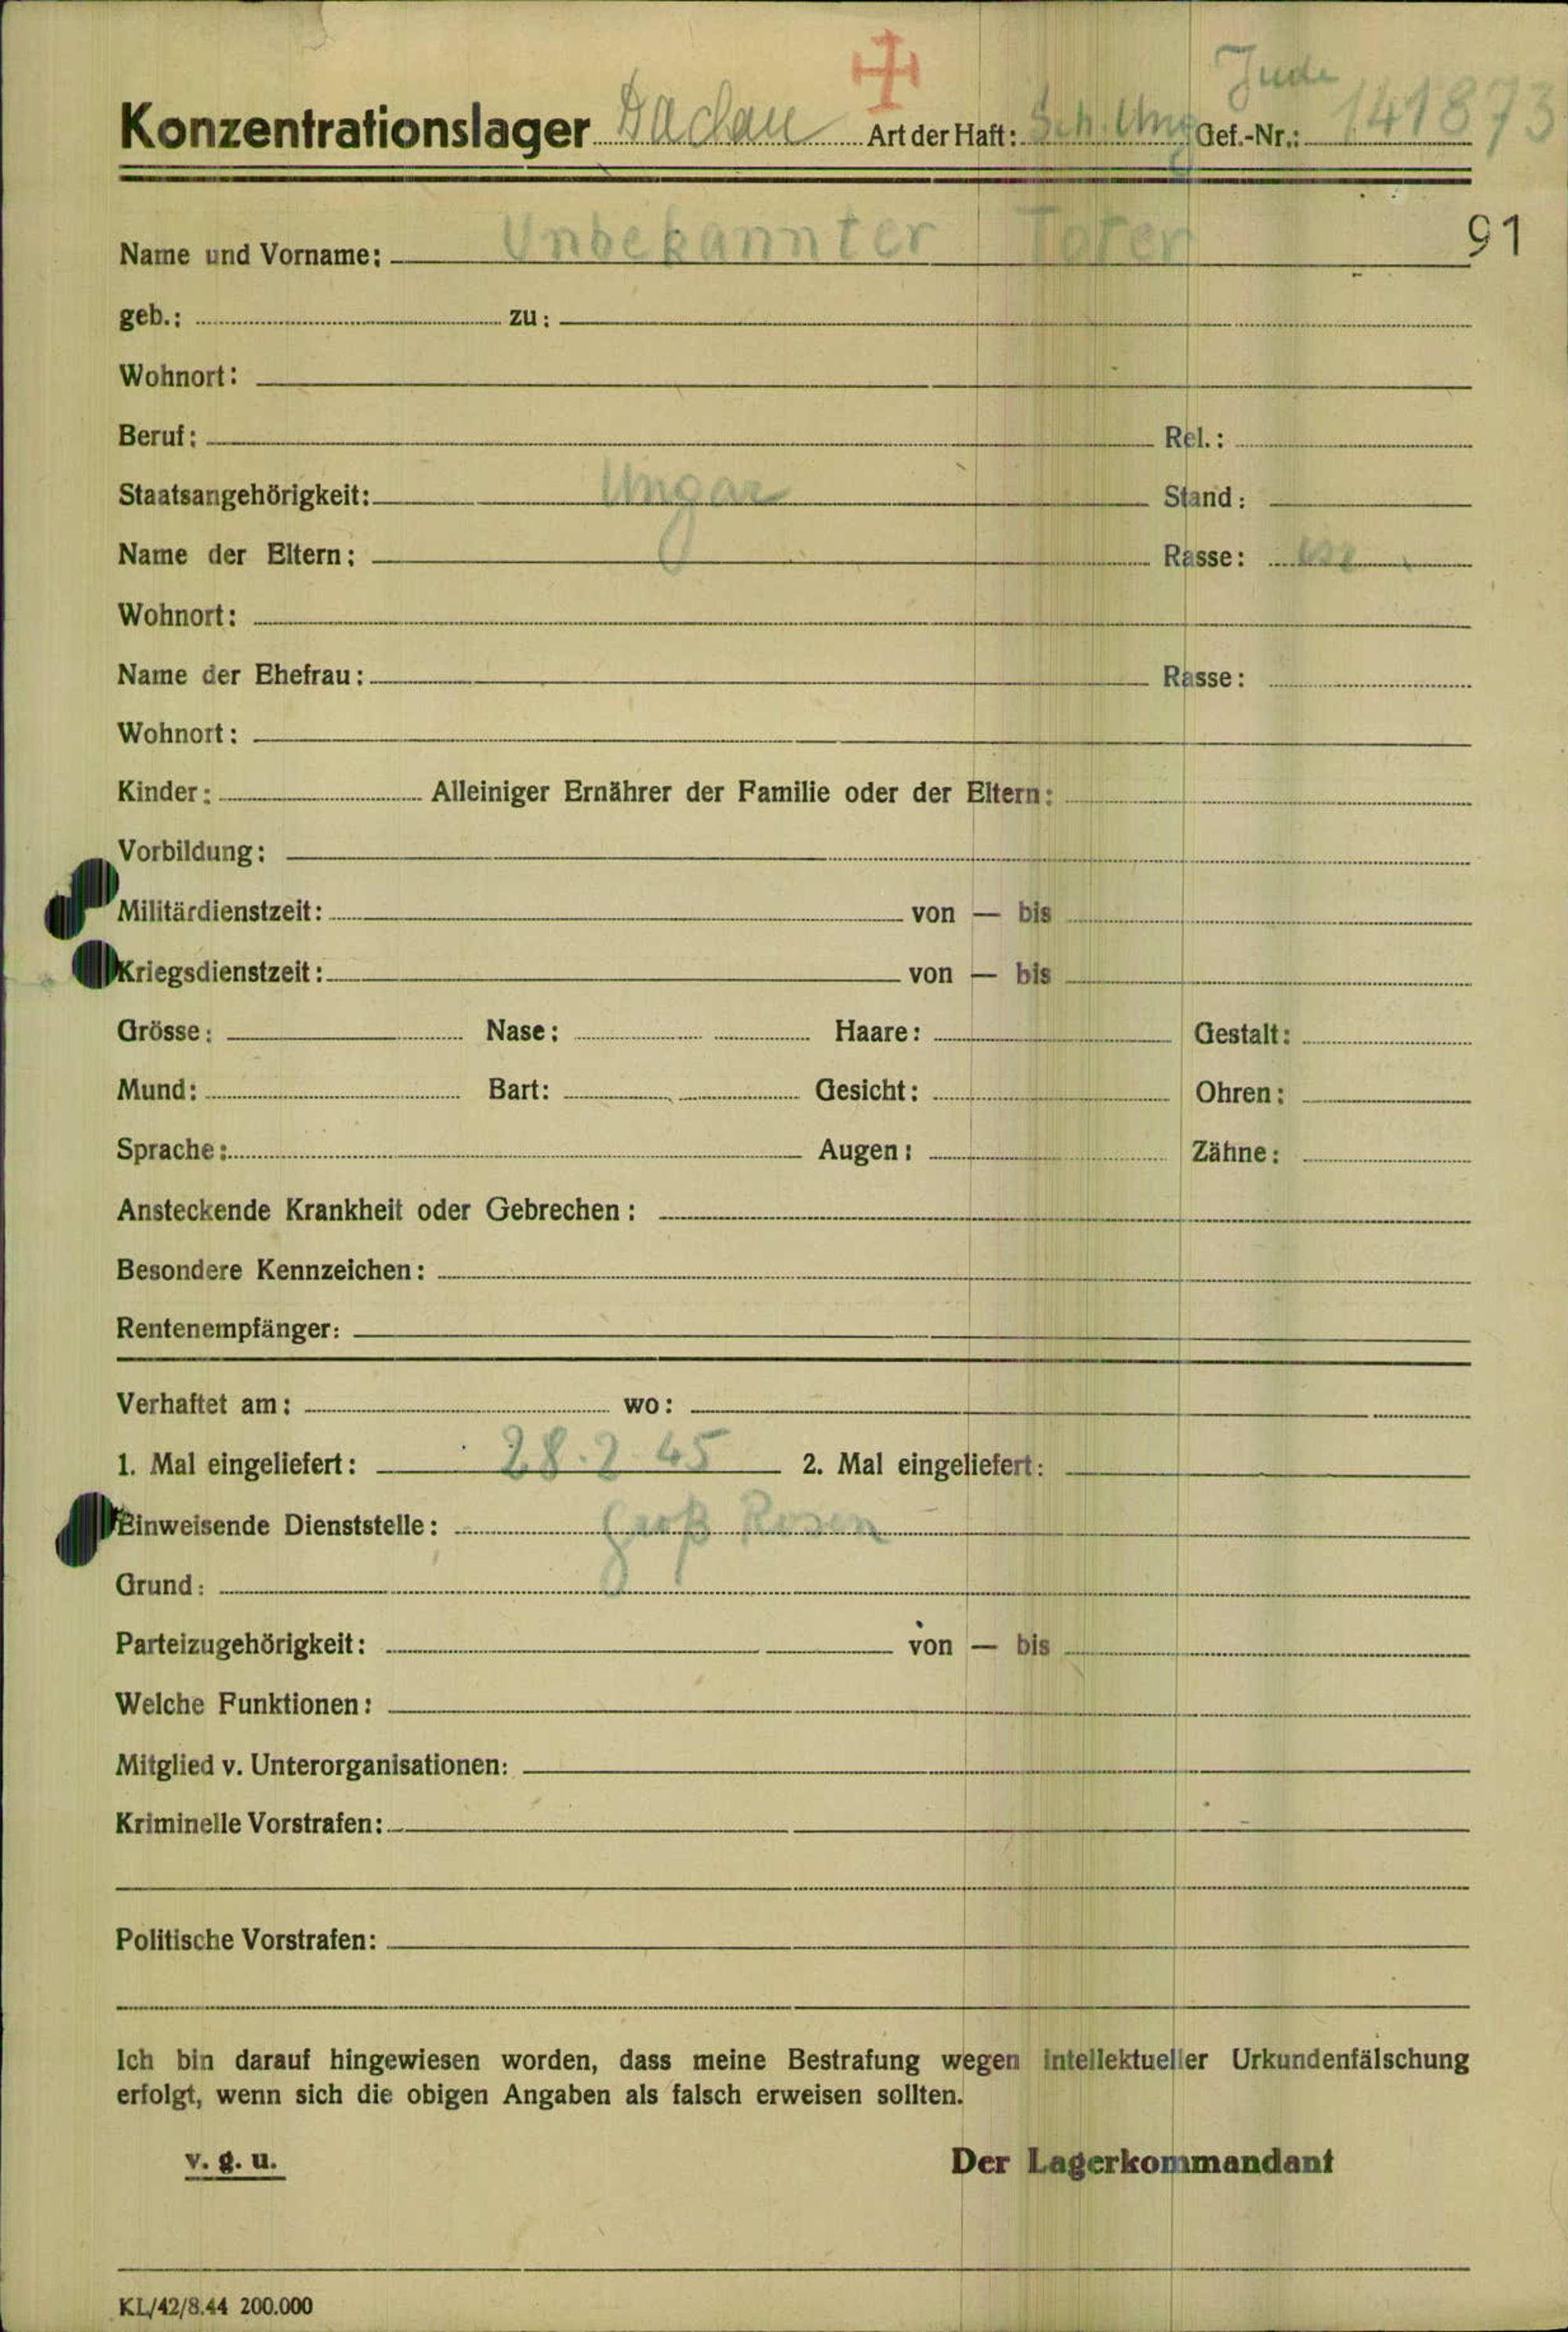 Jude
Konzentrationslager Dachau Art der Haft: Sch. Ung Gef.-Nr.: 141873
91
Name und Vorname: Unbekannter Toter
geb.: zu:
Wohnort:
Beruf: Rel.:
Staatsangehörigkeit: Ungar Stand:
Name der Eltern: Rasse:
Wohnort:
Name der Ehefrau: Rasse:
Wohnort:
Kinder: Alleiniger Ernährer der Familie oder der Eltern:
Vorbildung:
Militärdienstzeit: von — bis
Kriegsdienstzeit: von — bis
Grösse: Nase: Haare: Gestalt:
Mund: Bart: Gesicht: Ohren:
Sprache: Augen: Zähne:
Ansteckende Krankheit oder Gebrechen:
Besondere Kennzeichen:
Rentenempfänger:
Verhaftet am: wo:
1. Mal eingeliefert: 28.2.45 2. Mal eingeliefert:
Einweisende Dienststelle: Groß Rosen
Grund:
Parteizugehörigkeit: von — bis
Welche Funktionen:
Mitglied v. Unterorganisationen:
Kriminelle Vorstrafen:
Politische Vorstrafen:
Ich bin darauf hingewiesen worden, dass meine Bestrafung wegen intellektueller Urkundenfälschung
erfolgt, wenn sich die obigen Angaben als falsch erweisen sollten.
v. g. u. Der Lagerkommandant
KL/42/8.44 200.000